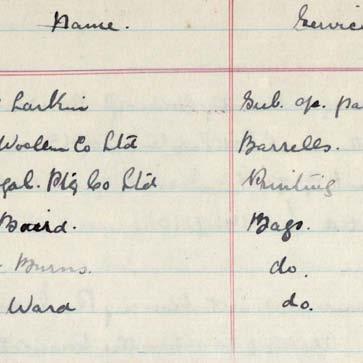 Name. Service
Larkin Sub. op. pa
Woolen Co Ltd Barrells.
gal. Ptg Co Ltd Printing
Baird. Bags.
Burns. do.
Ward do.